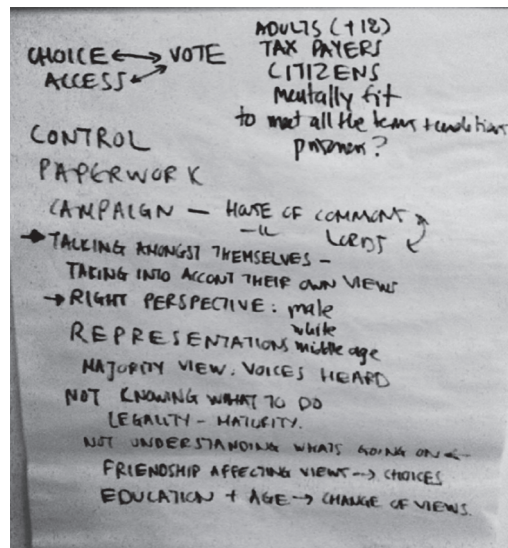 CHOICE ↔ VOTE
ACCESS
ADULTS (+18)
TAX PAYERS
CITIZENS
mentally fit
to meet all the terms + conditions
prisoners?
CONTROL
PAPERWORK
CAMPAIGN – HOUSE OF COMMONS
–ll– LORDS
→ TALKING AMONGST THEMSELVES –
TAKING INTO ACCONT THEIR OWN VIEWS
→ RIGHT PERSPECTIVE: male
white
REPRESENTATIONS middle age
MAJORITY VIEW. VOICES HEARD
NOT KNOWING WHAT TO DO
LEGALITY – MATURITY.
NOT UNDERSTANDING WHATS GOING ON ←
FRIENDSHIP AFFECTING VIEWS → CHOICES
EDUCATION + AGE → CHANGE OF VIEWS.